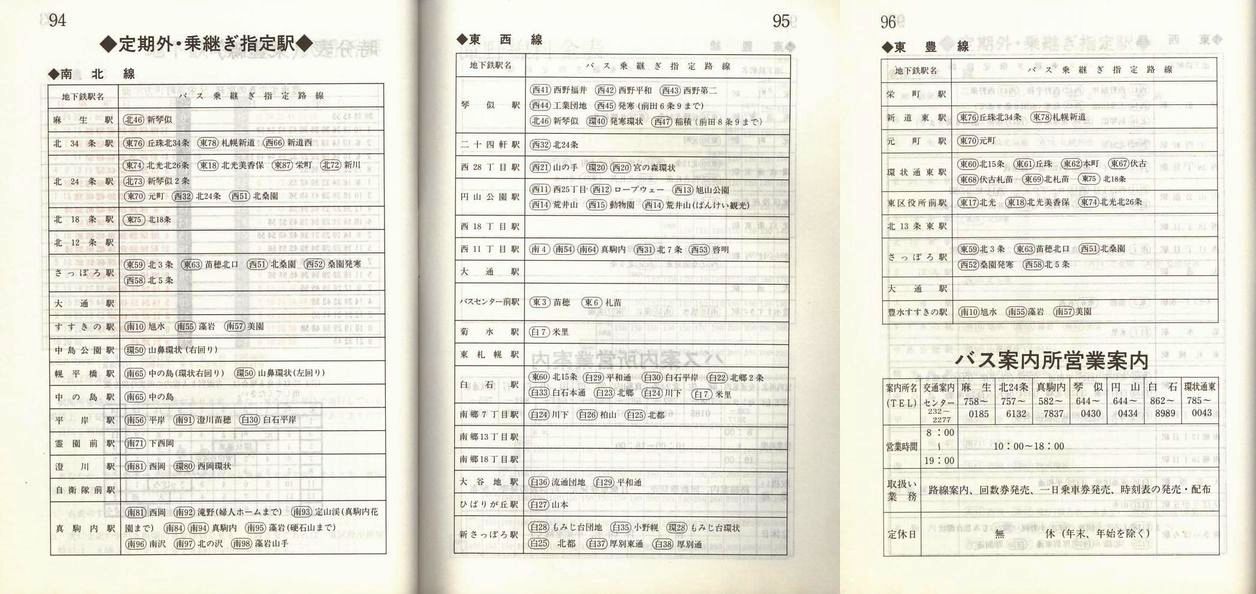 94
◆定期外・乗継ぎ指定駅◆
◆南北線
地下鉄駅名 バス乗継ぎ指定路線
麻生駅 北46 新琴似
北34条駅 東76 丘珠北34条 東78 札幌新道 西66 新道西
北24条駅 東74 北光北26条 東18 北光美香保 東87 栄町 北72 新川
北73 新琴似2条
東70 元町 西32 北24条 西51 北桑園
北18条駅 東75 北18条
北12条駅
さっぽろ駅 東59 北3条 東63 苗穂北口 西51 北桑園 西52 桑園発寒
西58 北5条
大通駅
すすきの駅 南10 旭水 南55 藻岩 南57 美園
中島公園駅 環50 山鼻環状(右回り)
幌平橋駅 南65 中の島(環状右回り) 環50 山鼻環状(左回り)
中の島駅 南65 中の島
平岸駅 南56 平岸 南91 澄川苗穂 白30 白石平岸
霊園前駅 南71 下西岡
澄川駅 南81 西岡 環80 西岡環状
自衛隊前駅
真駒内駅 南81 西岡 南92 滝野(婦人ホームまで) 南93 定山渓(真駒内花
園まで) 南84 南94 真駒内 南95 藻岩(硬石山まで)
南96 南沢 南97 北の沢 南98 藻岩山手
95
◆東西線
地下鉄駅名 バス乗継ぎ指定路線
琴似駅 西41 西野福井 西42 西野平和 西43 西野第二
西44 工業団地 西45 発寒(前田6条9まで)
北46 新琴似 環40 発寒環状 西47 稲積(前田8条9まで)
二十四軒駅 西32 北24条
西28丁目駅 西21 山の手 環20 西20 宮の森環状
円山公園駅 西11 西25丁目 西12 ロープウェー 西13 旭山公園
西14 荒井山 西15 動物園 西14 荒井山(ばんけい観光)
西18丁目駅
西11丁目駅 南4 南54 南64 真駒内 西31 北7条 西53 啓明
大通駅
バスセンター前駅 東3 苗穂 東6 札苗
菊水駅 白7 米里
東札幌駅
白石駅 東60 北15条 白29 平和通 白30 白石平岸 白22 北郷2条
白33 白石本通 白23 北郷 白24 川下 白7 米里
南郷7丁目駅 白24 川下 白26 柏山 白25 北都
南郷13丁目駅
南郷18丁目駅
大谷地駅 白36 流通団地 白29 平和通
ひばりが丘駅 白27 山本
新さっぽろ駅 白28 もみじ台団地 白35 小野幌 環28 もみじ台環状
白25 北都 白37 厚別東通 白38 厚別通
96
◆東豊線
地下鉄駅名 バス乗継ぎ指定路線
栄町駅
新道東駅 東76 丘珠北34条 東78 札幌新道
元町駅 東70 元町
環状通東駅 東60 北15条 東61 丘珠 東62 本町 東67 伏古
東68 伏古札苗 東69 北札苗 東75 北18条
東区役所前駅 東17 北光 東18 北光美香保 東74 北光北26条
北13条東駅
さっぽろ駅 東59 北3条 東63 苗穂北口 西51 北桑園
西52 桑園発寒 西58 北5条
大通駅
豊水すすきの駅 南10 旭水 南55 藻岩 南57 美園
バス案内所営業案内
案内所名 交通案内センター 麻生 北24条 真駒内 琴似 円山 白石 環状通東
(TEL) 232~2277 758~0185 757~6132 582~7837 644~0430 644~0434 862~8989 785~0043
営業時間 8:00~19:00 10:00~18:00
取扱い業務 路線案内、回数券発売、一日乗車券発売、時刻表の発売・配布
定休日 無 休(年末、年始を除く)